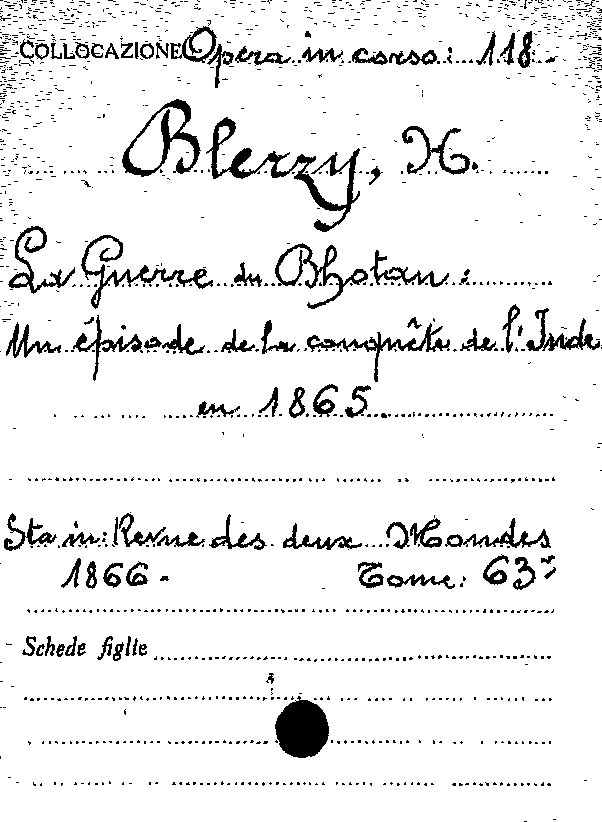 COLLOCAZIONE Opera in corso: 118.
Blerzy, H.
La Guerre du Bhotan:
Un épisode de la conquête de l'Inde
en 1865.
Sta in: Revue des deux Mondes
1866. Tome: 63
Schede figlie